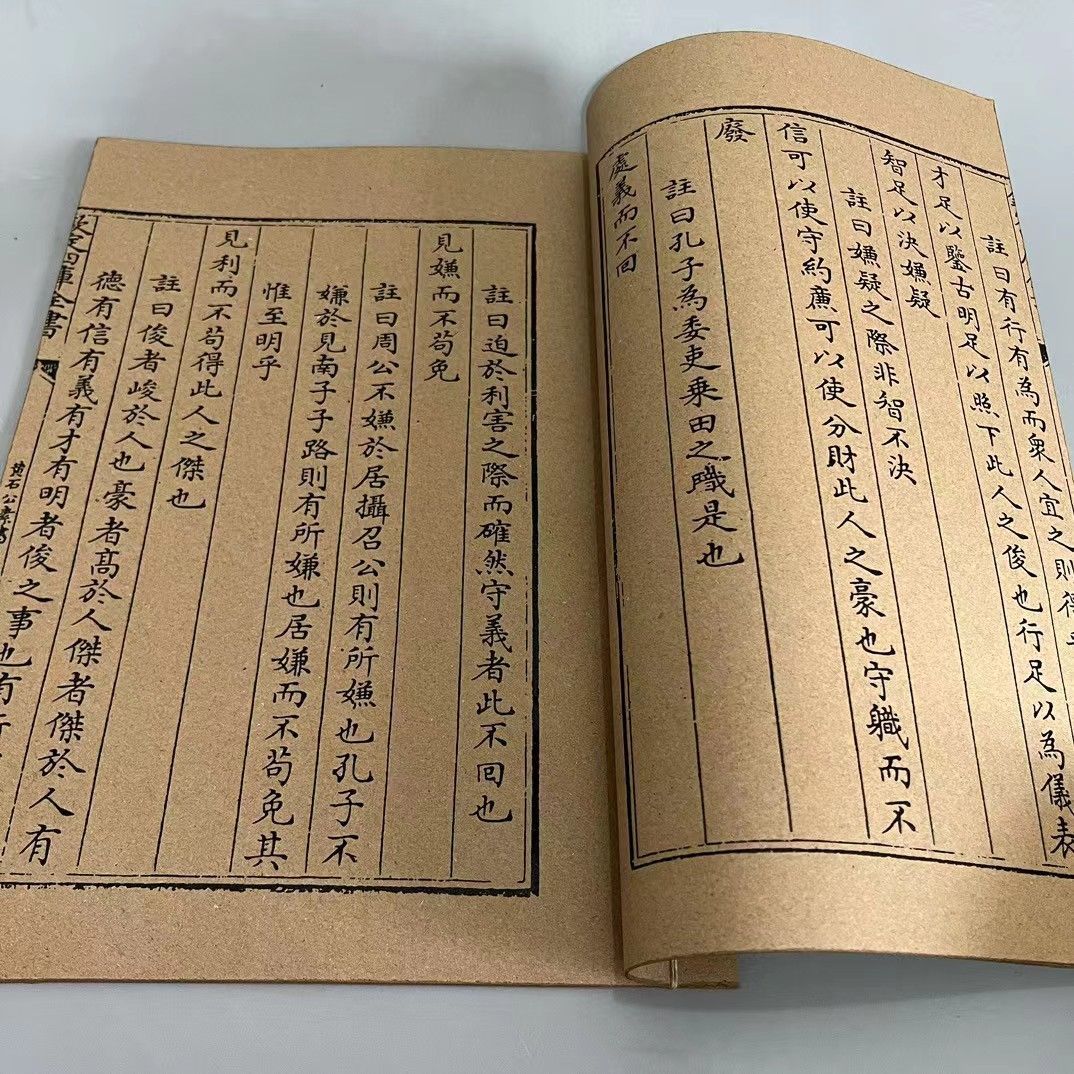 註曰有行有為而衆人宜之則得
才足以鑒古明足以照下此人之俊也行足以為儀表
智足以決嫌疑
註曰嫌疑之際非智不決
信可以使守約廉可以使分財此人之豪也守軄而不
廢
註曰孔子為委吏乗田之職是也
處義而不回
註曰迫於利害之際而確然守義者此不回也
見嫌而不茍免
註曰周公不嫌於居攝召公則有所嫌也孔子不
嫌於見南子子路則有所嫌也居嫌而不茍免其
惟至明乎
見利而不茍得此人之傑也
註曰俊者峻於人也豪者髙於人傑者傑於人有
德有信有義有才有明者俊之事也有行
欽定四庫全書
黄石公素書